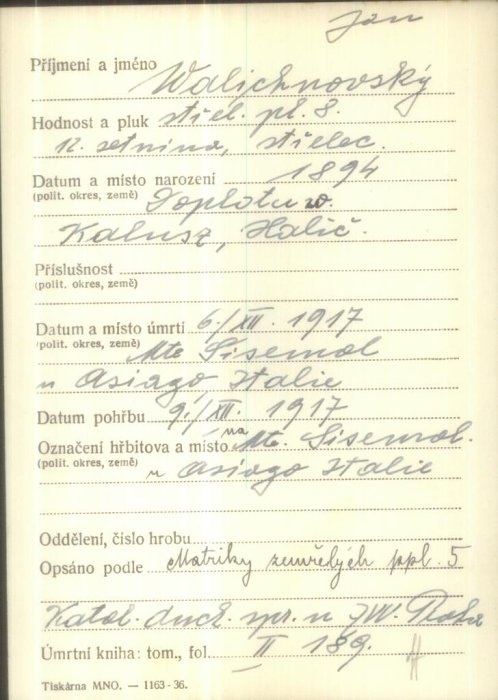 Ján
Příjmení a jméno Walichnovský
Hodnost a pluk střel. pl. 8.
12. setnina, střelec.
Datum a místo narození 1894
(polit. okres, země) Doplotuw.
Kalusz, Halič.
Příslušnost
(polit. okres, země)
Datum a místo úmrtí 6./XII. 1917
(polit. okres, země) Mte Sisemol
u Asiago, Italie
Datum pohřbu 9./XII. 1917
Označení hřbitova a místo na Mte. Sisemol.
(polit. okres, země) u Asiago Italie
Oddělení, číslo hrobu
Opsáno podle Matriky zemřelých ppl. 5
Katol. duch. spr. u ZVV. Praha
Úmrtní kniha: tom., fol. II 189.
Tiskárna MNO. — 1163-36.